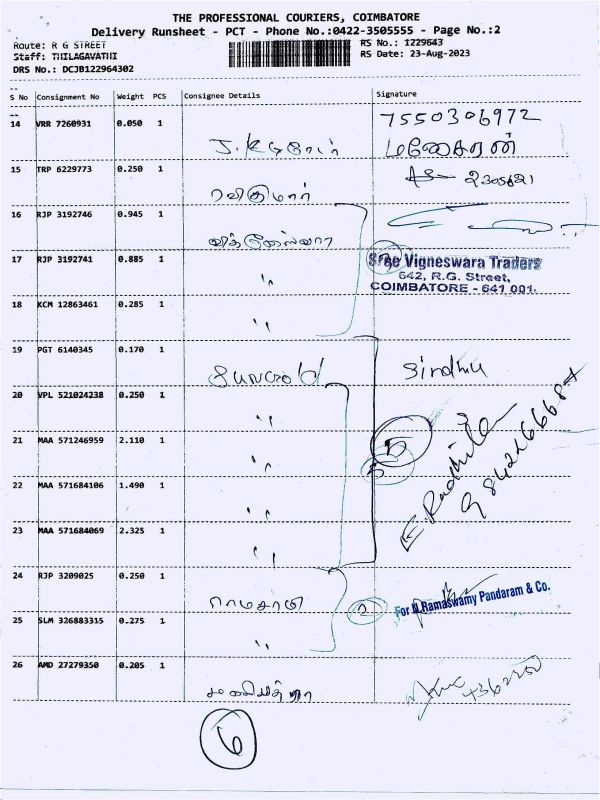 THE PROFESSIONAL COURIERS, COIMBATORE
Delivery Runsheet - PCT - Phone No.:0422-3505555 - Page No.:2
Route: R G STREET
Staff: THILAGAVATHI
DRS No.: DCJB122964302
RS No.: 1229643
RS Date: 23-Aug-2023
S No Consignment No Weight PCS Consignee Details Signature
14 VRR 7260931 0.050 1 7550306972
மனோகரன்
15 TRP 6229773 0.250 1
ரவிகுமார்
16 RJP 3192746 0.945 1
விக்னேஸ்வரா
17 RJP 3192741 0.885 1 Sree Vigneswara Traders
642, R.G. Street,
COIMBATORE - 641 001.
"
18 KCM 12863461 0.285 1
"
19 PGT 6140345 0.170 1 Sindhu
20 VPL 521024238 0.250 1
"
21 MAA 571246959 2.110 1 5
"
22 MAA 571684106 1.490 1
"
23 MAA 571684069 2.325 1
"
24 RJP 3209025 0.250 1
ராமசாமி 2 For N Ramaswamy Pandaram & Co.
25 SLM 326883315 0.275 1
"
26 AMD 27279350 0.205 1
6